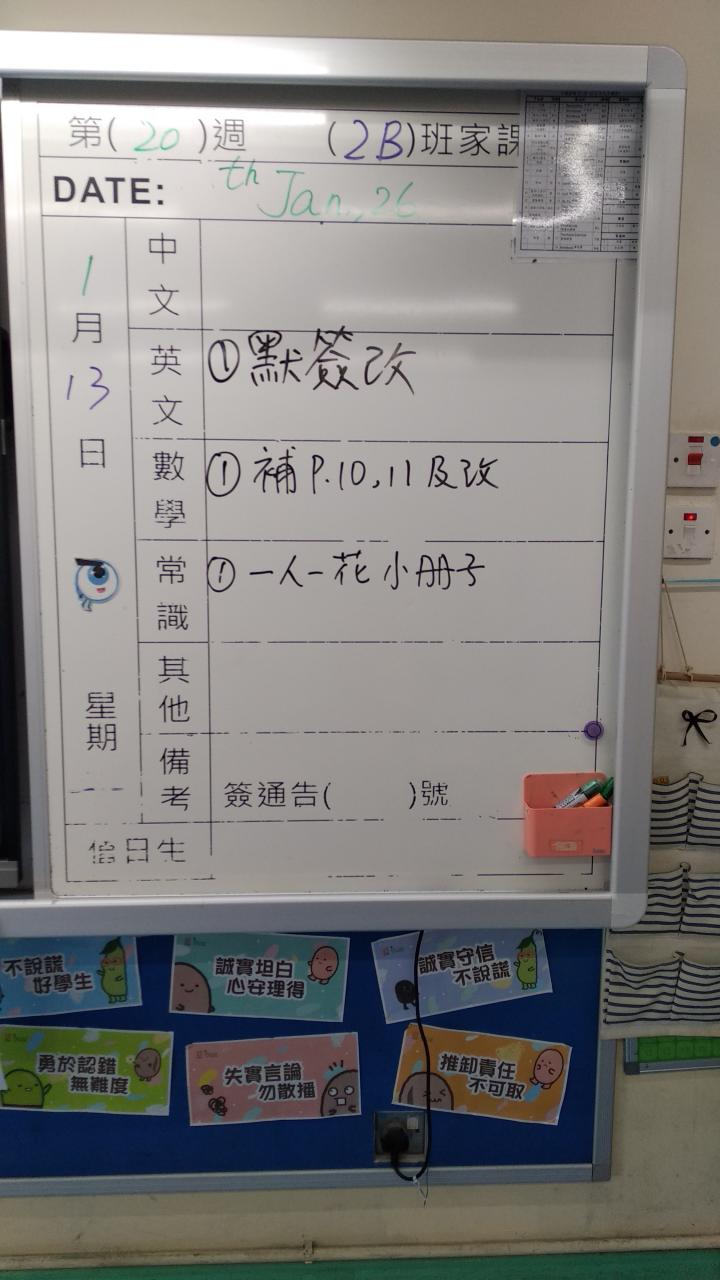 第( 20 )週 (2B)班家課
DATE: th Jan., 26
1月13日 星期一
中文
英文 ①默簽改
數學 ①補P.10,11及改
常識 ①一人一花小册子
其他
備考 簽通告( )號
值日生
不說謊
好學生
誠實坦白
心安理得
誠實守信
不說謊
勇於認錯
無難度
失實言論
勿散播
推卸責任
不可取